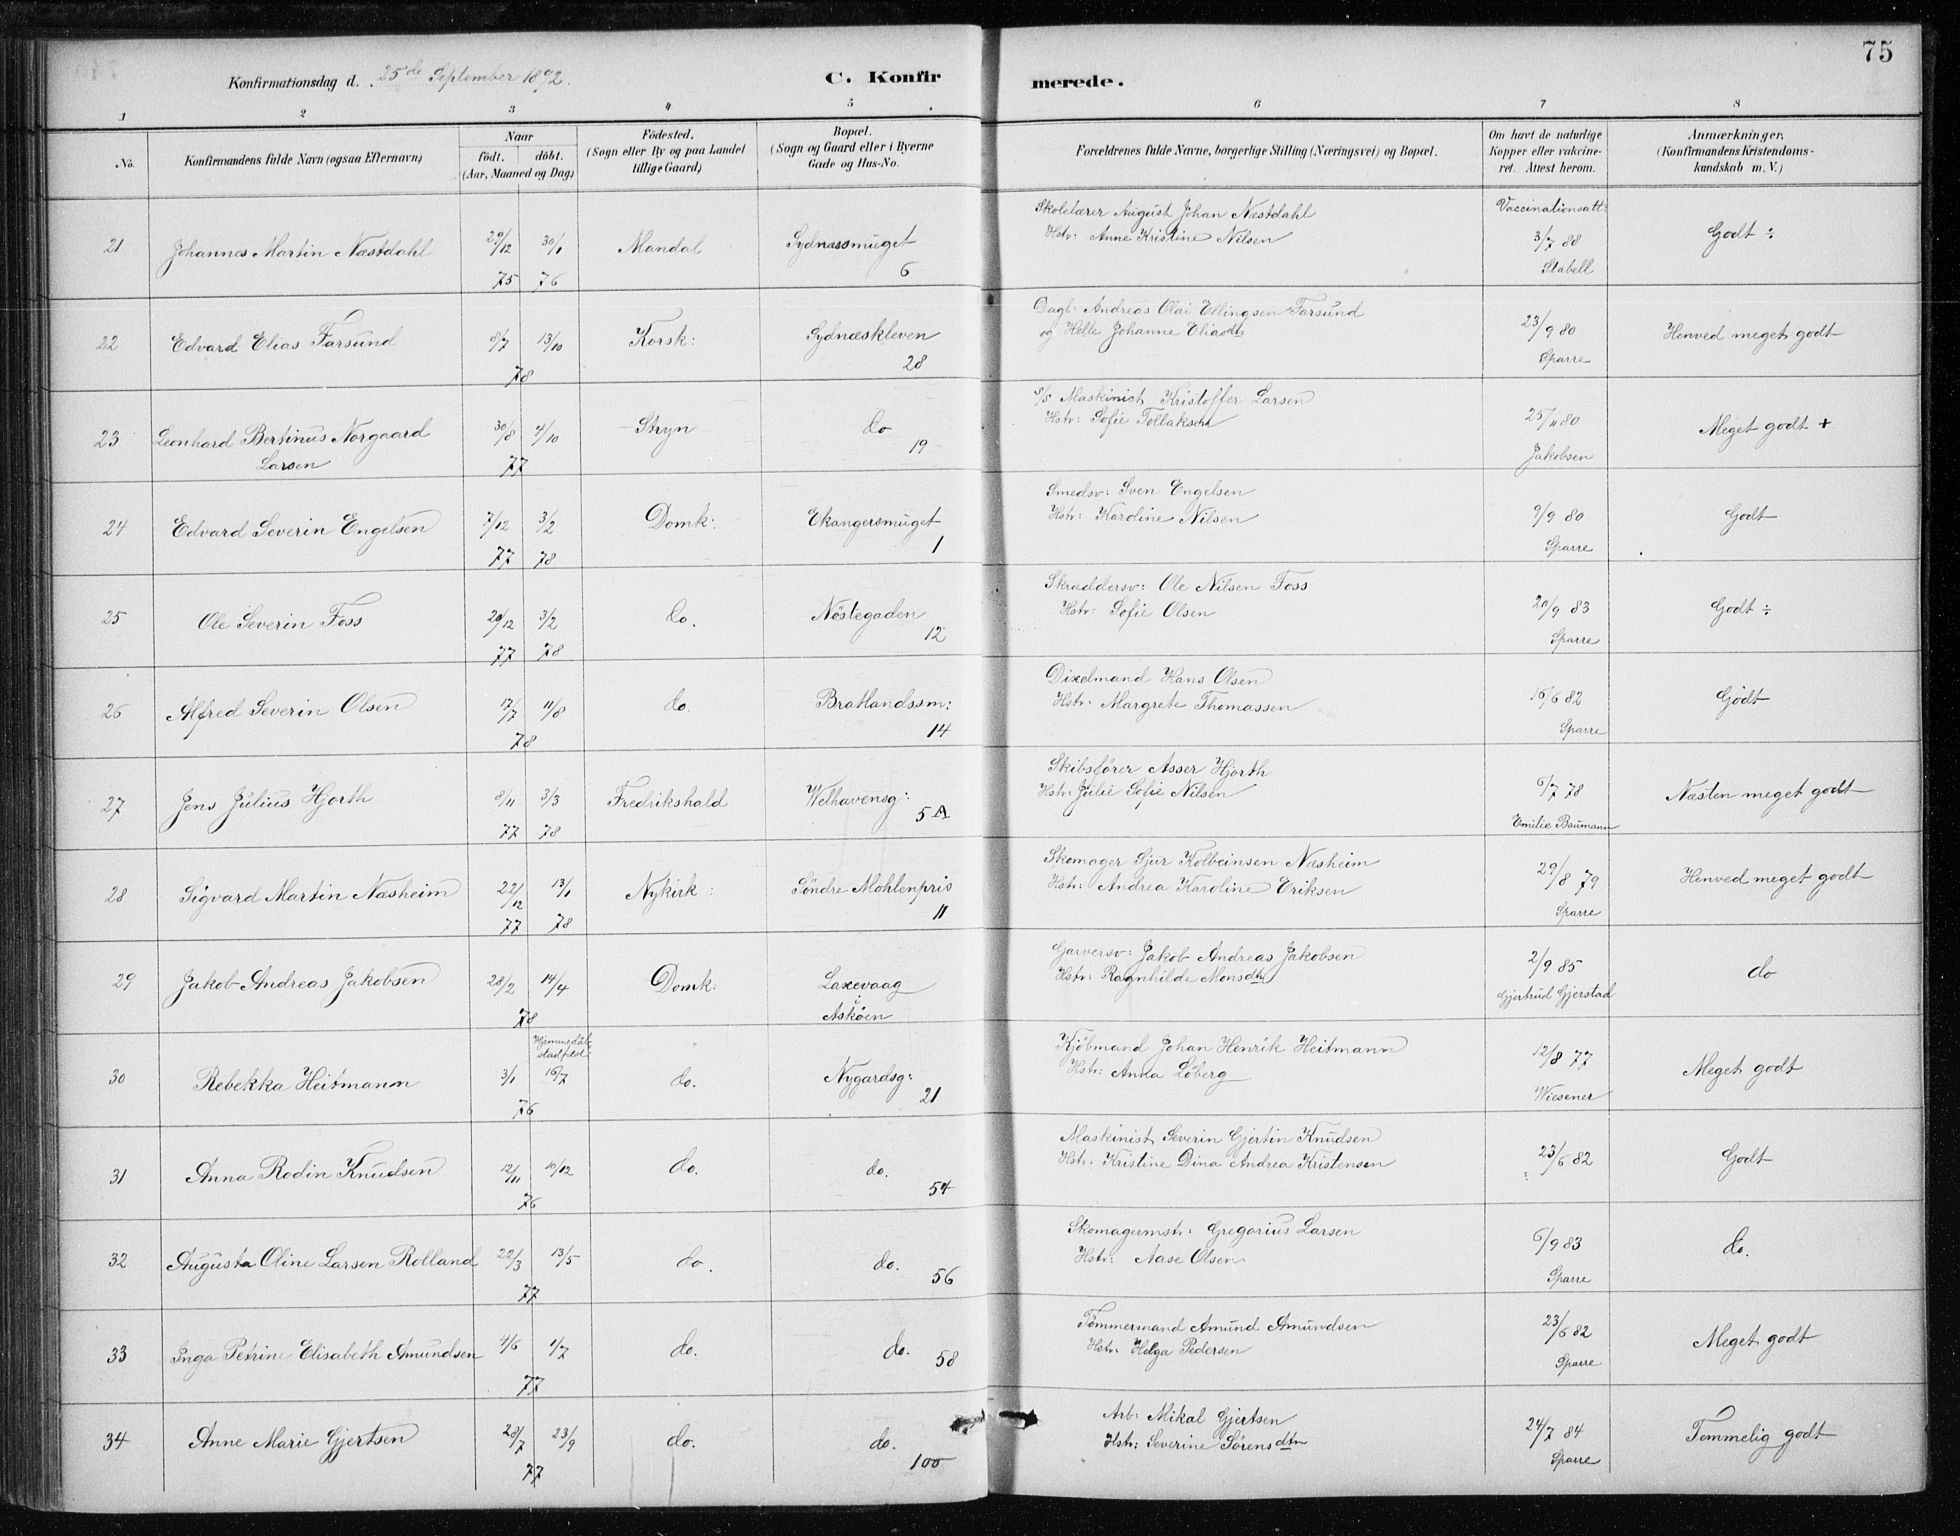 75
Konfirmationsdag d. 25de September 1892. C. Konfirmerede.
1 2 3 4 5 6 7 8
No. Konfirmandens fulde Navn (ogsaa Efternavn) Naar födt. döbt. (Aar, Maaned og Dag) Födested. (Sogn eller By og paa Landet tillige Gaard) Bopæl. (Sogn og Gaard eller i Byerne Gade og Hus-No. Forældrenes fulde Navne, borgerlige Stilling (Næringsvei) og Bopæl. Om havt de naturlige Kopper eller vakcineret. Attest herom. Anmærkninger. (Konfirmandens Kristendomskundskab m. V.)
21 Johannes Martin Næstdahl 29/12 75 30/1 76 Mandal Sydnæssmuget 6 Skolelærer August Johan Næstdahl Hstr: Anne Kristine Nilsen Vaccinationsatt: 3/7 88 Stabell Godt ÷
22 Edvard Elias Farsund 8/7 13/10 78 Korsk: Sydnæskleven 28 Dagl: Andreas Olai Ellingsen Farsund og Helle Johanne Eliasdtr 23/9 80 Sparre Henved meget godt
23 Leonhard Bertinus Norgaard Larsen 30/8 4/10 77 Stryn do 19 S/S Maskinist Kristoffer Larsen Hstr: Sofie Tollaksen 25/11 80 Jakobsen Meget godt +
24 Edvard Severin Engelsen 7/12 77 3/2 78 Domk: Ekangersmuget 1 Smedsv: Sven Engelsen Hstr: Karoline Nilsen 9/9 80 Sparre Godt
25 Ole Severin Foss 29/12 77 3/2 78 do. Nöstegaden 12 Skræddersv: Ole Nilsen Foss Hstr: Sofie Olsen 20/9 83 Sparre Godt ÷
26 Alfred Severin Olsen 17/7 11/8 78 do. Bratlandssm: 14 Dixelmand Hans Olsen Hstr: Margrete Thomassen 16/6 82 Sparre Godt
27 Jens Julius Hjorth 8/11 77 3/3 78 Fredrikshald Welhavensg: 5 A Skibsfører Asser Hjorth Hstr: Julie Sofie Nilsen 6/7 78 Emilie Baumann Næsten meget godt
28 Sigvard Martin Næsheim 22/12 77 13/1 78 Nykirk: Söndre Mohlenpris 11 Skomager Sjur Kolbeinsen Næsheim Hstr: Andrea Karoline Eriksen 29/8 79 Sparre Henved meget godt
29 Jakob Andreas Jakobsen 28/2 14/4 78 Domk: Laxevaag i Asköen Garversv: Jakob Andreas Jakobsen Hstr: Ragnhilde Monsdtr 2/9 85 Gjertrud Gjerstad do
30 Rebekka Heitmann 3/1 Hjemmedåb stadfæst 16/7 76 do. Nygardsg: 21 Kjöbmand Johan Henrik Heitmann Hstr: Anna Löberg 12/8 77 Wiesener Meget godt
31 Anna Rodin Knudsen 12/11 10/12 76 do. do. 54 Maskinist Severin Gjertin Knudsen Hstr: Kristine Dina Andrea Kristensen 23/6 82 Godt
32 Augusta Oline Larsen Rolland 22/3 13/5 77 do. do. 56 Skomagermstr: Gregorius Larsen Hstr: Aase Olsen 6/9 83 Sparre do.
33 Inga Petrine Elisabeth Amundsen 4/6 1/7 77 do. do. 58 Tömmermand Amund Amundsen Hstr: Helga Pedersen 23/6 82 Sparre Meget godt
34 Anne Marie Gjertsen 28/7 23/9 77 do. do. 100 Arb: Mikal Gjertsen Hstr: Severine Sörensdtr 24/7 84 Sparre Temmelig godt